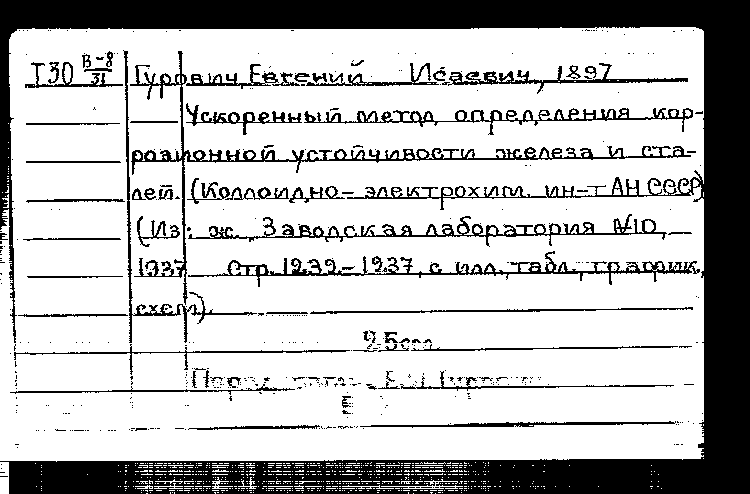 Т30 В-8/31 Гурович, Евгений Исаевич, 1897
Ускоренный метод определения кор-
розионной устойчивости железа и ста-
лей. (Коллоидно-электрохим. ин-т АН СССР)
(Из: ж. Заводская лаборатория №10,
1937 стр. 1239-1937, с илл., табл., график,
схем).